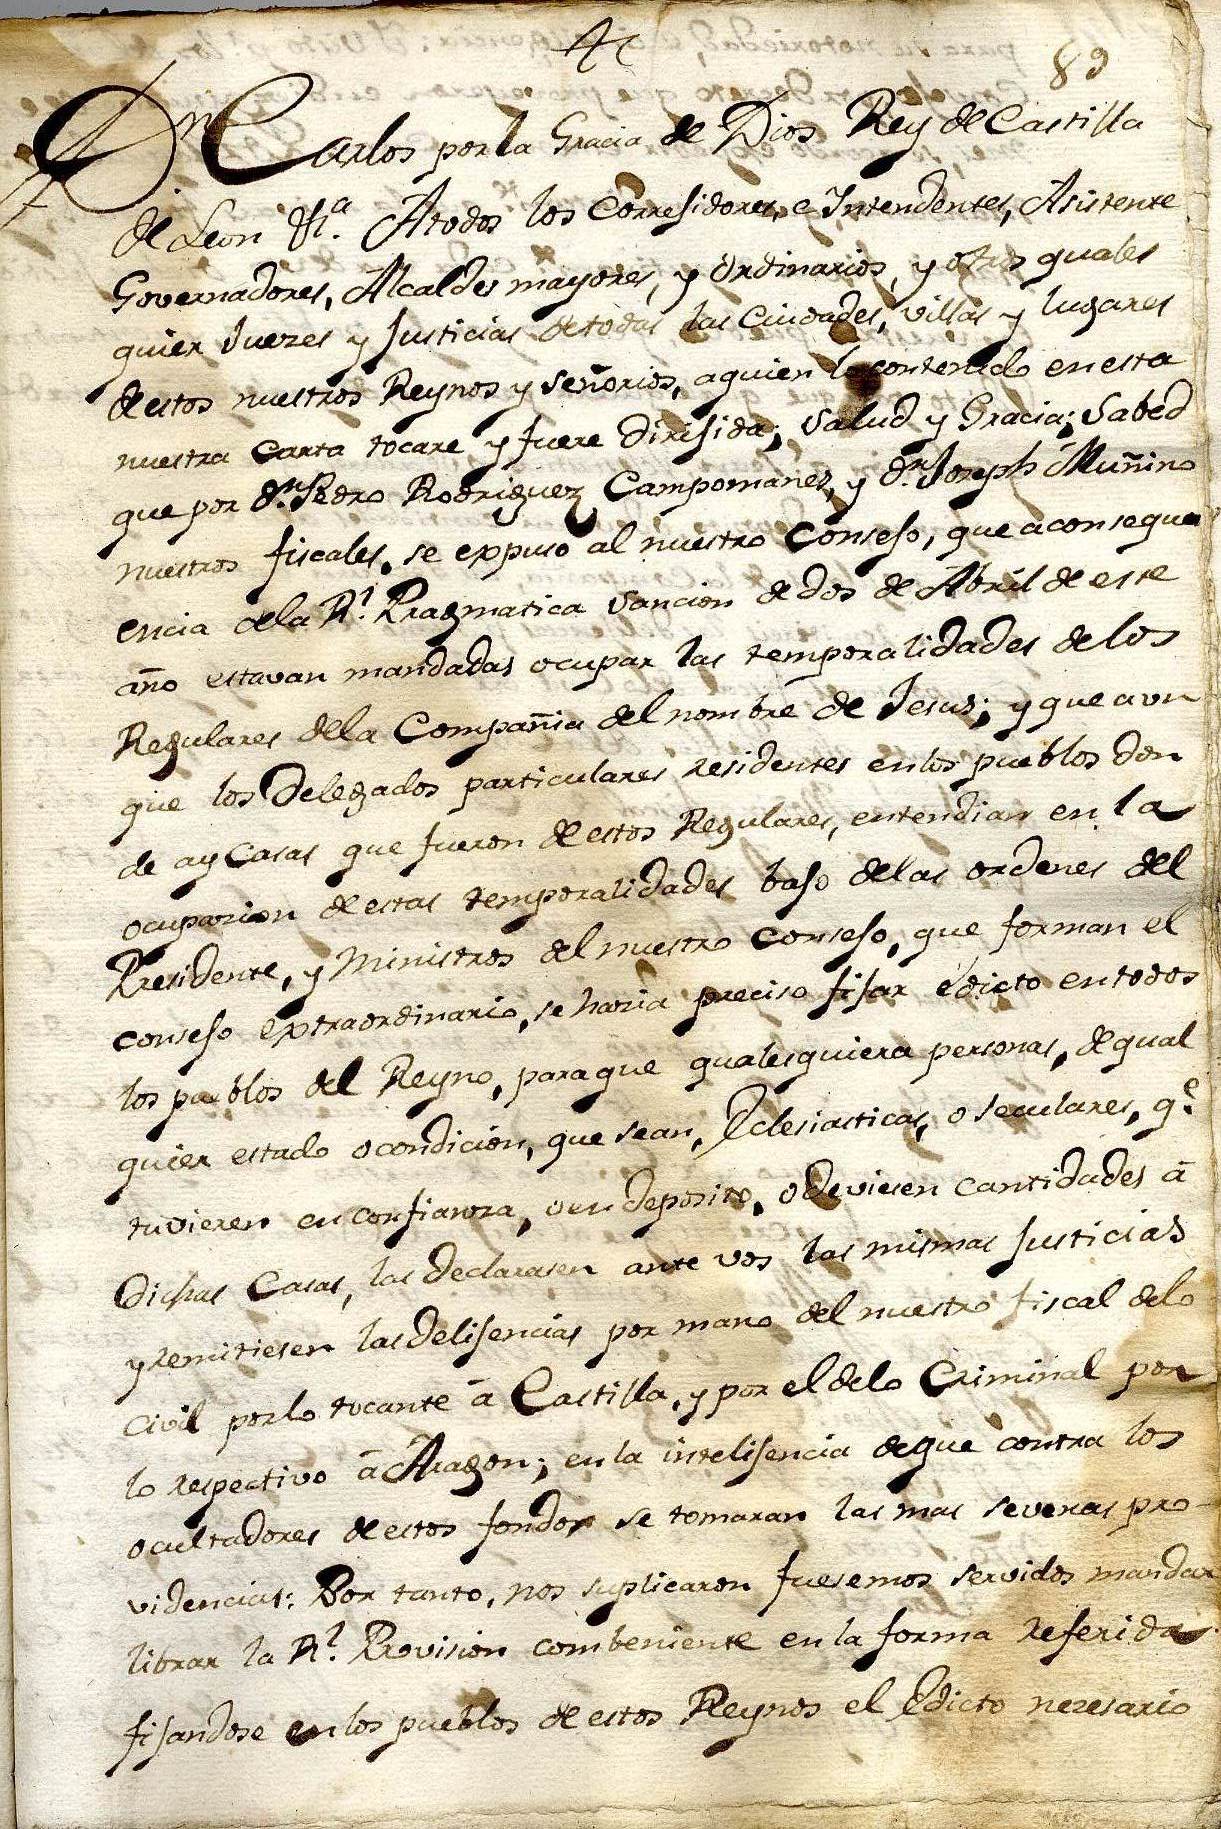 89
Dn Carlos por la Gracia de Dios Rey de Castilla
de Leon &a. Atodos los Corregidores, e Yntendentes, Asistente
Governadores, Alcaldes mayores, y ordinarios, y otros quales
quier Juezes y Justicias detodas las Ciudades, villas y lugares
destos nuestros Reynos y señorios, aquien lo contenido en esta
nuestra Carta tocare y fuere dirijida; Salud y Gracia; Sabed
que por Dn. Pedro Rodriguez Campomanes, y Dn. Joseph Muñino
nuestros fiscales, se expuso al nuestro Consejo, que aconsequen
encia dela Rl. Pragmatica Sancion de dos de Abril de este
año estavan mandadas ocupar las temporalidades delos
Regulares dela Compañia del nombre de Jesus; y que aun
que los Delegados particulares residentes enlos pueblos don
de ay Casas que fueron destos Regulares, entendian en la
ocupazion destas temporalidades bajo delas ordenes del
Presidente, y Ministros del nuestro Consejo, que forman el
consejo extraordinario, se hazia preciso fijar edicto entodos
los pueblos del Reyno, paraque qualesquiera personas, de qual
quier estado o condicion, que sean, Eclesiasticas, o seculares, qe.
tuvieren en confianza, o en deposito, o devieren cantidades á
dichas Casas, las declarasen ante vos las mismas Justicias
y remitiesen las delijencias por mano del nuestro fiscal delo
Civil porlo tocante á Castilla, y por el delo Criminal por
lo respectivo á Aragon; en la intelijencia deque contra los
ocultadores destos fondos se tomaran las mas severas pro-
videncias: Por tanto, nos suplicaron fuesemos servidos mandar
librar la Rl. Provision combeniente en la forma referida
fijandose en los pueblos de estos Reynos el Edicto nezesario